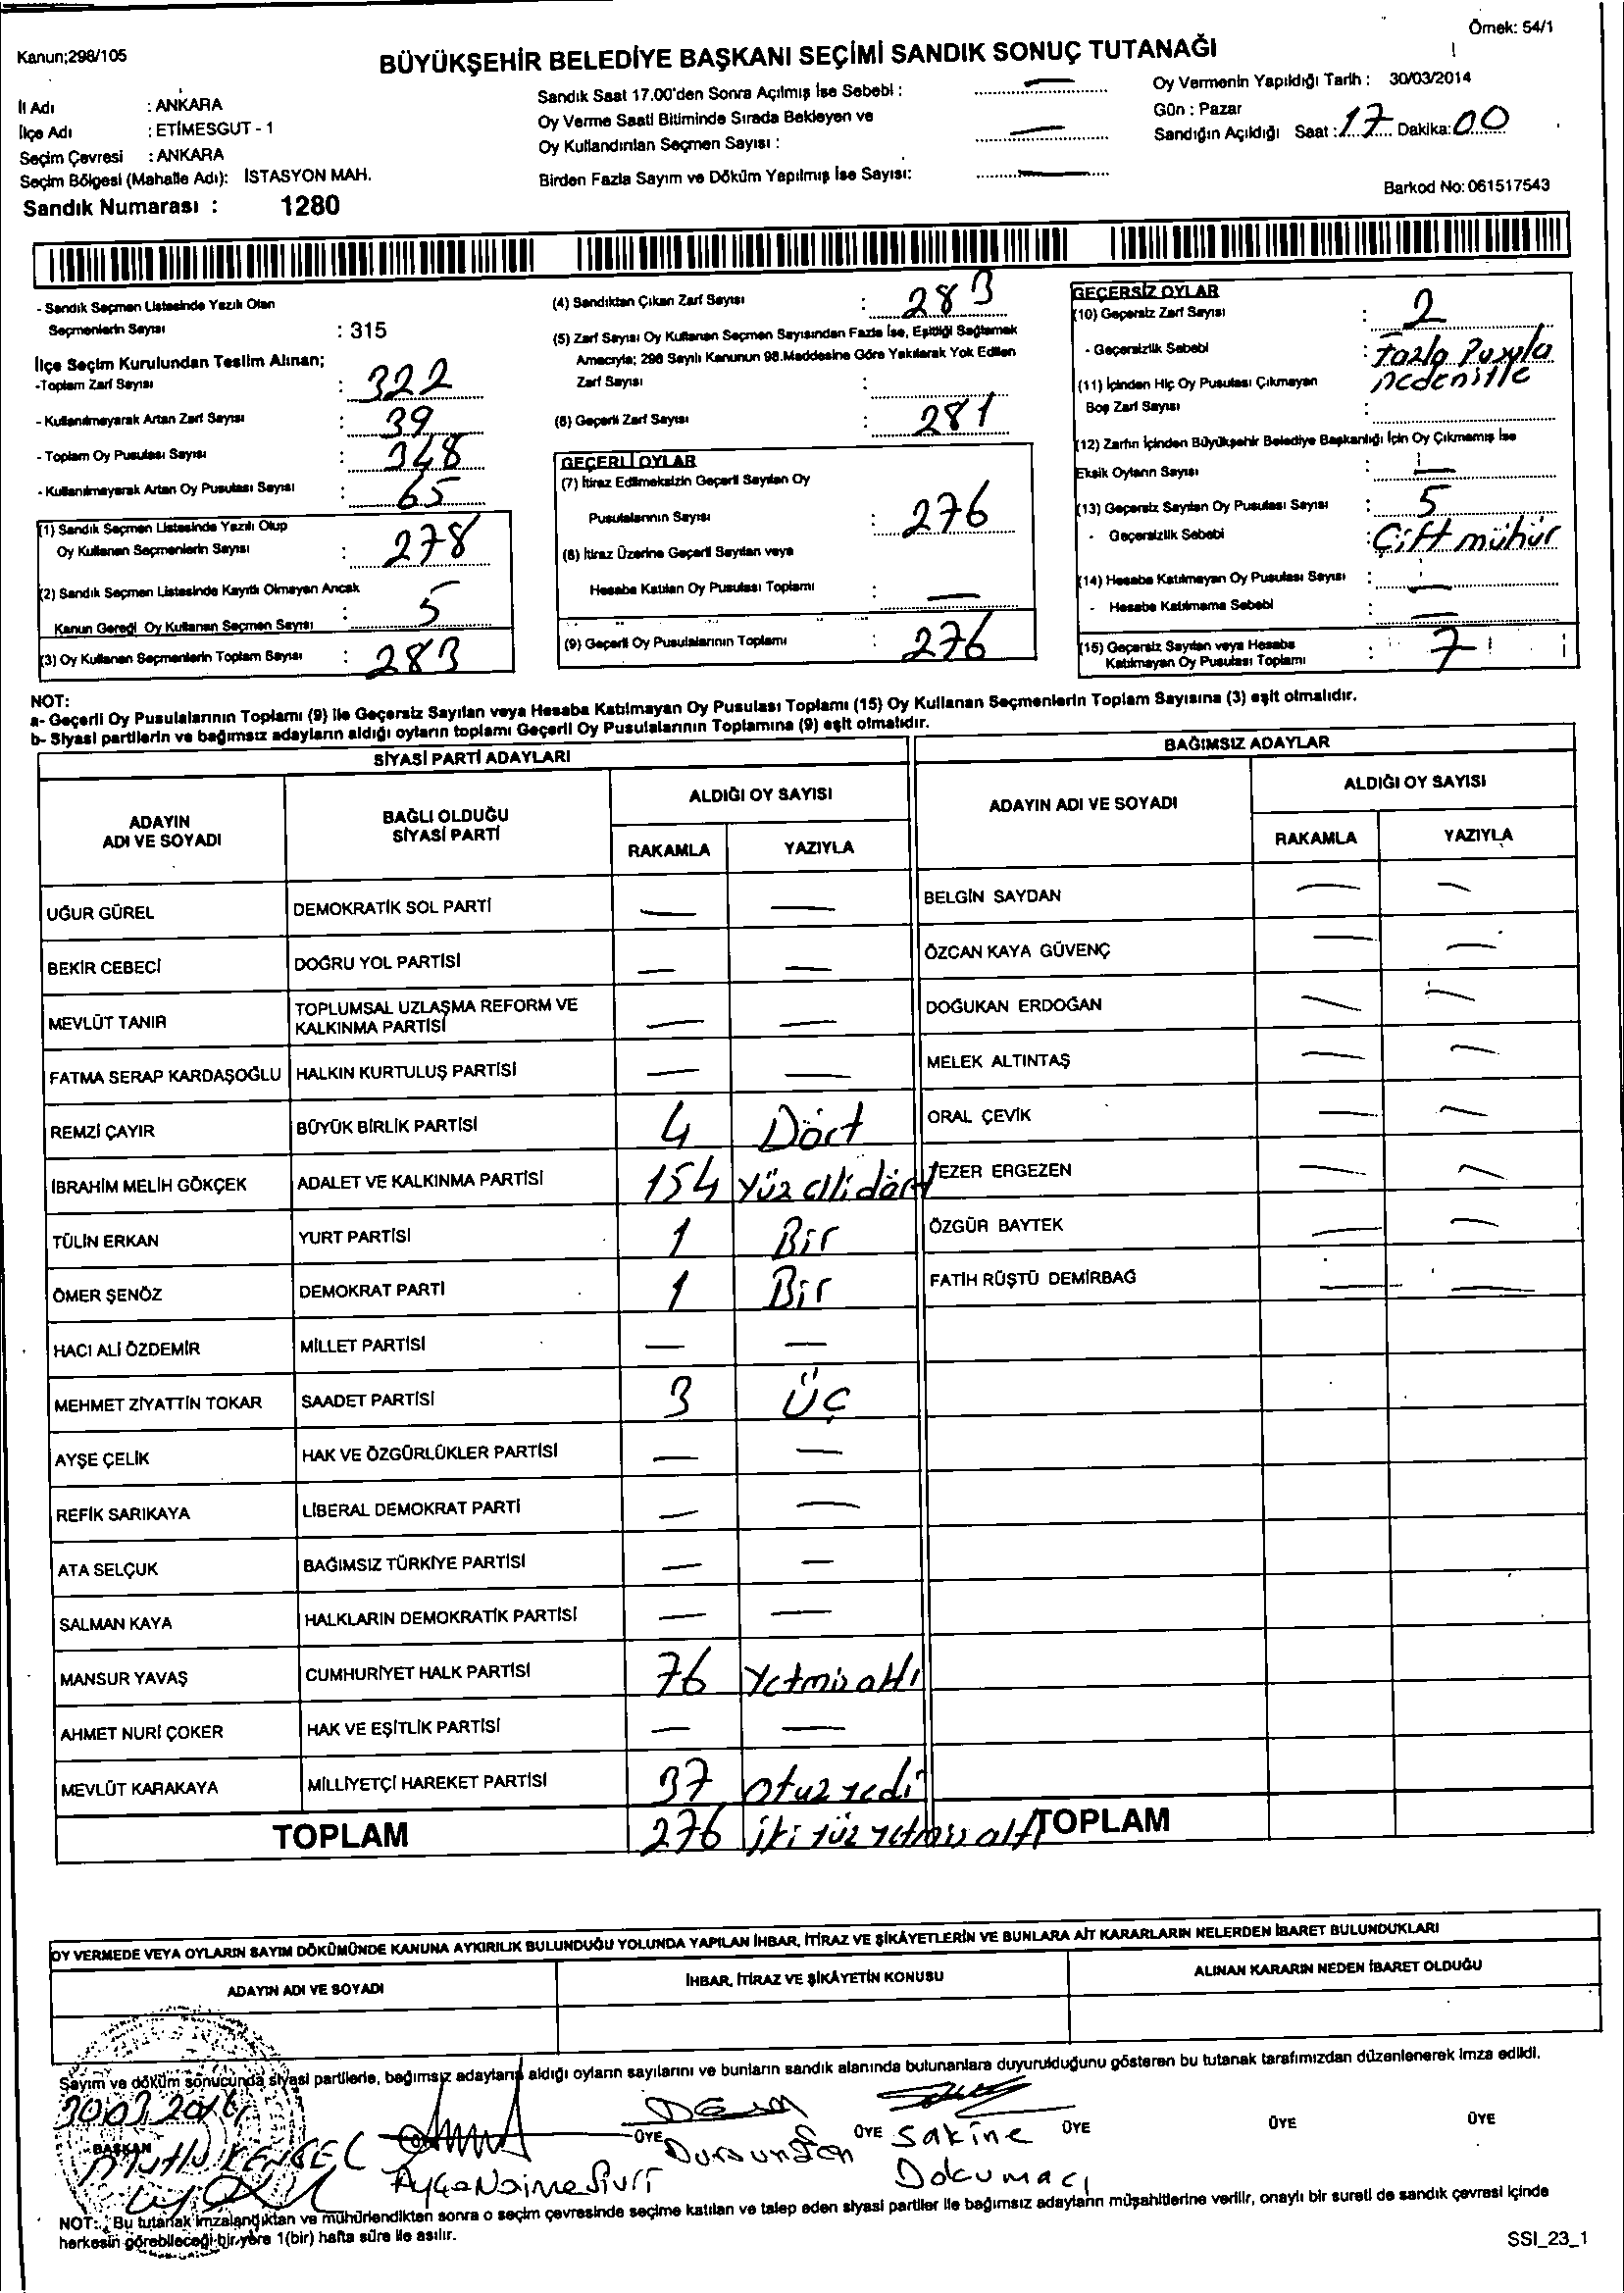 Örnek: 54/1
Kanun;298/105
BÜYÜKŞEHİR BELEDİYE BAŞKANI SEÇİMİ SANDIK SONUÇ TUTANAĞI
İl Adı : ANKARA
İlçe Adı : ETİMESGUT - 1
Seçim Çevresi : ANKARA
Seçim Bölgesi (Mahalle Adı): İSTASYON MAH.
Sandık Numarası : 1280
Sandık Saat 17.00'den Sonra Açılmış İse Sebebi : —
Oy Verme Saati Bitiminde Sırada Bekleyen ve
Oy Kullandırılan Seçmen Sayısı : —
Birden Fazla Sayım ve Döküm Yapılmış İse Sayısı: —
Oy Vermenin Yapıldığı Tarih : 30/03/2014
Gün : Pazar
Sandığın Açıldığı Saat : 17 Dakika: 00
Barkod No: 061517543
- Sandık Seçmen Listesinde Yazılı Olan
Seçmenlerin Sayısı : 315
İlçe Seçim Kurulundan Teslim Alınan;
-Toplam Zarf Sayısı : 322
- Kullanılmayarak Artan Zarf Sayısı : 39
- Toplam Oy Pusulası Sayısı : 348
- Kullanılmayarak Artan Oy Pusulası Sayısı : 65
(1) Sandık Seçmen Listesinde Yazılı Olup
Oy Kullanan Seçmenlerin Sayısı : 278
(2) Sandık Seçmen Listesinde Kayıtlı Olmayan Ancak
Kanun Gereği Oy Kullanan Seçmen Sayısı : 5
(3) Oy Kullanan Seçmenlerin Toplam Sayısı : 283
(4) Sandıktan Çıkan Zarf Sayısı : 283
(5) Zarf Sayısı Oy Kullanan Seçmen Sayısından Fazla İse, Eşitliği Sağlamak
Amacıyla; 298 Sayılı Kanunun 98.Maddesine Göre Yakılarak Yok Edilen
Zarf Sayısı :
(6) Geçerli Zarf Sayısı : 281
GEÇERLİ OYLAR
(7) İtiraz Edilmeksizin Geçerli Sayılan Oy
Pusulalarının Sayısı : 276
(8) İtiraz Üzerine Geçerli Sayılan veya
Hesaba Katılan Oy Pusulası Toplamı : —
(9) Geçerli Oy Pusulalarının Toplamı : 276
GEÇERSİZ OYLAR
(10) Geçersiz Zarf Sayısı : 2
- Geçersizlik Sebebi : Fazla Pusula
nedeniyle
(11) İçinden Hiç Oy Pusulası Çıkmayan
Boş Zarf Sayısı :
(12) Zarfın İçinden Büyükşehir Belediye Başkanlığı İçin Oy Çıkmamış İse
Eksik Oyların Sayısı : —
(13) Geçersiz Sayılan Oy Pusulası Sayısı : 5
- Geçersizlik Sebebi : Çift mühür
(14) Hesaba Katılmayan Oy Pusulası Sayısı : —
- Hesaba Katılmama Sebebi : —
(15) Geçersiz Sayılan veya Hesaba
Katılmayan Oy Pusulası Toplamı : 7
NOT:
a- Geçerli Oy Pusulalarının Toplamı (9) ile Geçersiz Sayılan veya Hesaba Katılmayan Oy Pusulası Toplamı (15) Oy Kullanan Seçmenlerin Toplam Sayısına (3) eşit olmalıdır.
b- Siyasi partilerin ve bağımsız adayların aldığı oyların toplamı Geçerli Oy Pusulalarının Toplamına (9) eşit olmalıdır.
SİYASİ PARTİ ADAYLARI
ADAYIN
ADI VE SOYADI
BAĞLI OLDUĞU
SİYASİ PARTİ
ALDIĞI OY SAYISI
RAKAMLA YAZIYLA
UĞUR GÜREL DEMOKRATİK SOL PARTİ — —
BEKİR CEBECİ DOĞRU YOL PARTİSİ — —
MEVLÜT TANIR TOPLUMSAL UZLAŞMA REFORM VE
KALKINMA PARTİSİ — —
FATMA SERAP KARDAŞOĞLU HALKIN KURTULUŞ PARTİSİ — —
REMZİ ÇAYIR BÜYÜK BİRLİK PARTİSİ 4 Dört
İBRAHİM MELİH GÖKÇEK ADALET VE KALKINMA PARTİSİ 154 Yüz elli dört
TÜLİN ERKAN YURT PARTİSİ 1 Bir
ÖMER ŞENÖZ DEMOKRAT PARTİ 1 Bir
HACI ALİ ÖZDEMİR MİLLET PARTİSİ — —
MEHMET ZİYATTİN TOKAR SAADET PARTİSİ 3 Üç
AYŞE ÇELİK HAK VE ÖZGÜRLÜKLER PARTİSİ — —
REFİK SARIKAYA LİBERAL DEMOKRAT PARTİ — —
ATA SELÇUK BAĞIMSIZ TÜRKİYE PARTİSİ — —
SALMAN KAYA HALKLARIN DEMOKRATİK PARTİSİ — —
MANSUR YAVAŞ CUMHURİYET HALK PARTİSİ 76 Yetmiş altı
AHMET NURİ ÇOKER HAK VE EŞİTLİK PARTİSİ — —
MEVLÜT KARAKAYA MİLLİYETÇİ HAREKET PARTİSİ 37 otuz yedi
TOPLAM 276 iki yüz yetmiş altı
BAĞIMSIZ ADAYLAR
ADAYIN ADI VE SOYADI
ALDIĞI OY SAYISI
RAKAMLA YAZIYLA
BELGİN SAYDAN — —
ÖZCAN KAYA GÜVENÇ — —
DOĞUKAN ERDOĞAN — —
MELEK ALTINTAŞ — —
ORAL ÇEVİK — —
EZER ERGEZEN — —
ÖZGÜR BAYTEK — —
FATİH RÜŞTÜ DEMİRBAĞ — —
TOPLAM
OY VERMEDE VEYA OYLARIN SAYIM DÖKÜMÜNDE KANUNA AYKIRILIK BULUNDUĞU YOLUNDA YAPILAN İHBAR, İTİRAZ VE ŞİKÂYETLERİN VE BUNLARA AİT KARARLARIN NELERDEN İBARET BULUNDUKLARI
ADAYIN ADI VE SOYADI
İHBAR, İTİRAZ VE ŞİKÂYETİN KONUSU
ALINAN KARARIN NEDEN İBARET OLDUĞU
Sayım ve döküm sonucunda siyasi partilerle, bağımsız adayların aldığı oyların sayılarını ve bunların sandık alanında bulunanlara duyurulduğunu gösteren bu tutanak tarafımızdan düzenlenerek imza edildi.
30.03.2014
BAŞKAN ÜYE ÜYE ÜYE ÜYE ÜYE
Mutlu
Dursun Şen
Sakine
Dokumacı
NOT: Bu tutanak imzalandıktan ve mühürlendikten sonra o seçim çevresinde seçime katılan ve talep eden siyasi partiler ile bağımsız adayların müşahitlerine verilir, onaylı bir sureti de sandık çevresi içinde
herkesin görebileceği bir yere 1(bir) hafta süre ile asılır.
SSI_23_1